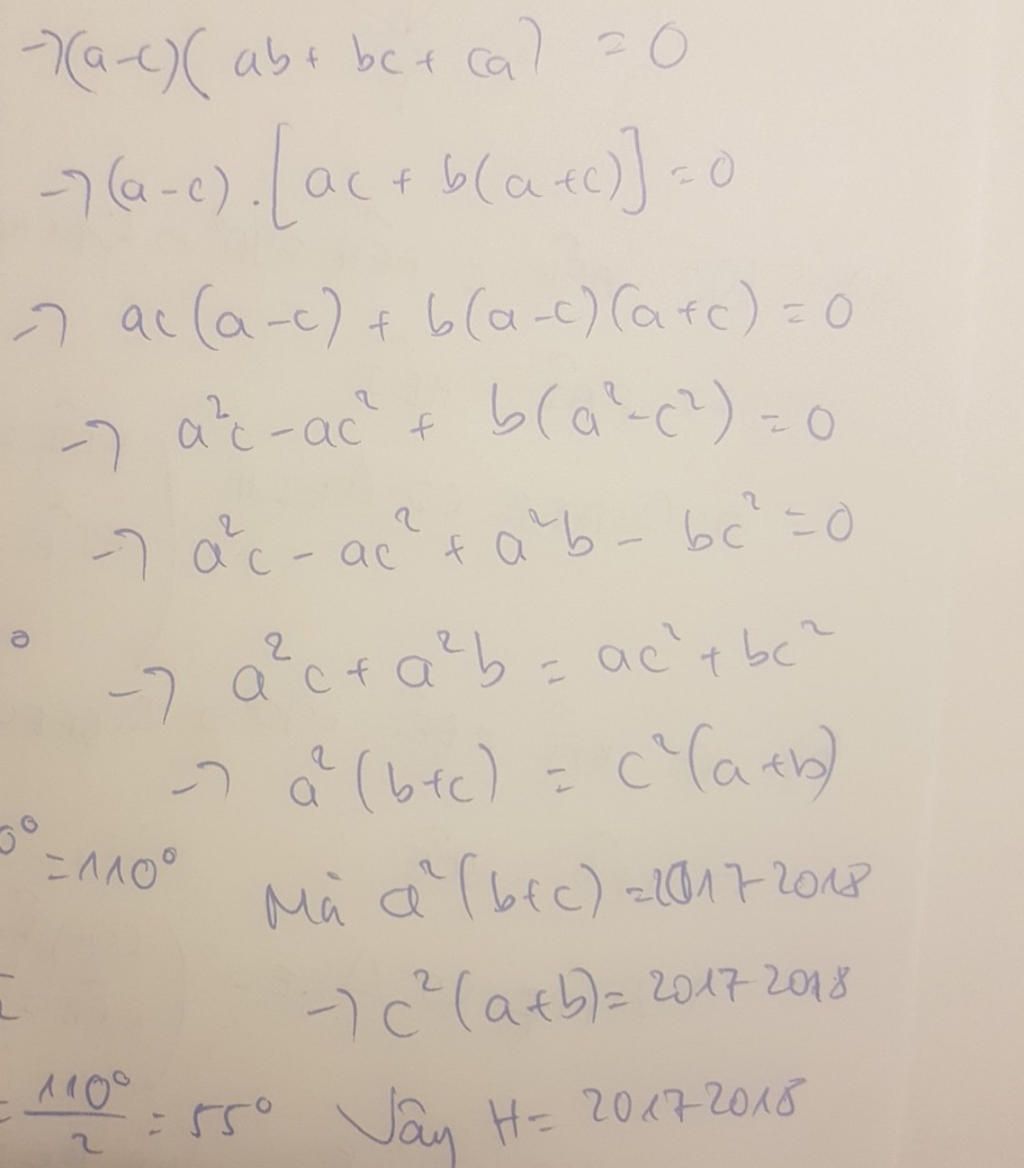 →(a-c)(ab+ bc + ca) = 0
→(a-c).[ac + b(a+c)] = 0
→ ac(a-c) + b(a-c)(a+c) = 0
→ a²c - ac² + b(a²-c²) = 0
→ a²c - ac² + a²b - bc² = 0
→ a²c + a²b = ac² + bc²
→ a²(b+c) = c²(a+b)
0° = 110°
Mà a²(b+c) = 20172018
→ c²(a+b) = 20172018
= 110°/2 = 55°
Vậy H = 20172018